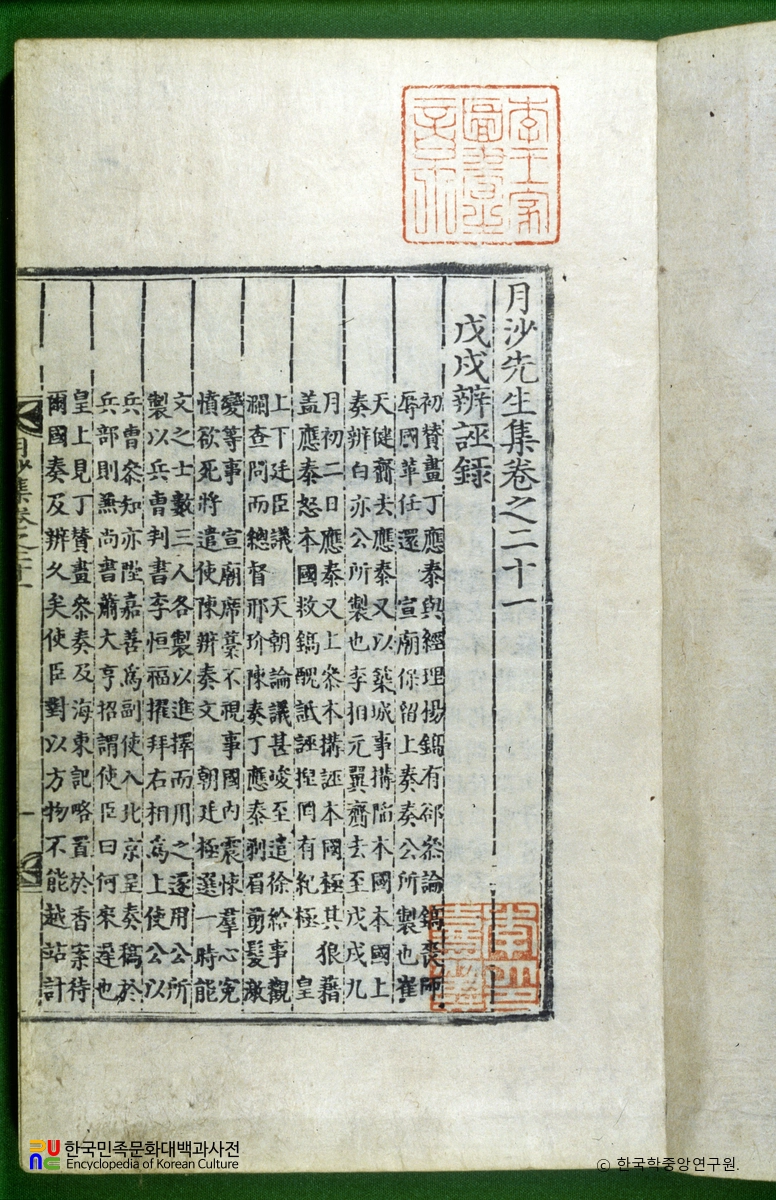 李王家
圖書之
章
月沙先生集卷之二十一
戊戌辨誣錄
初贊畫丁應泰與經理楊鎬有郤叅論鎬喪師
辱國革任還 宣廟保留上奏奏公所製也崔
天健齎去應泰又以築城事搆陷本國本國上
奏辨白亦公所製也李相元翼齎去至戊戌九
月初二日應泰又上叅本搆誣本國極其狼藉
盖應泰怒本國救鎬醜詆誣捏罔有紀極 皇
上下廷臣議 天朝論議甚峻至遣徐給事觀
瀾查問而總督邢玠陳奏丁應泰剃眉剪髮激
變等事 宣廟席藁不視事國內震悚羣心冤
憤欲死將遣使陳辨奏文 朝廷極選一時能
文之士數三人各製以進擇而用之遂用公所
製以兵曹判書李恒福擢拜右相爲上使公以
兵曹叅知亦陞嘉善爲副使入北京呈奏稿於
兵部則無尚書蕭大亨招謂使臣曰何來遲也
皇上見丁贊畫叅奏及海東記略置於香案待
爾國奏及辨久矣使臣對以方物不能越站計
月沙集卷之二十一
一
한국민족문화대백과사전
Encyclopedia of Korean Culture
© 한국학중앙연구원.